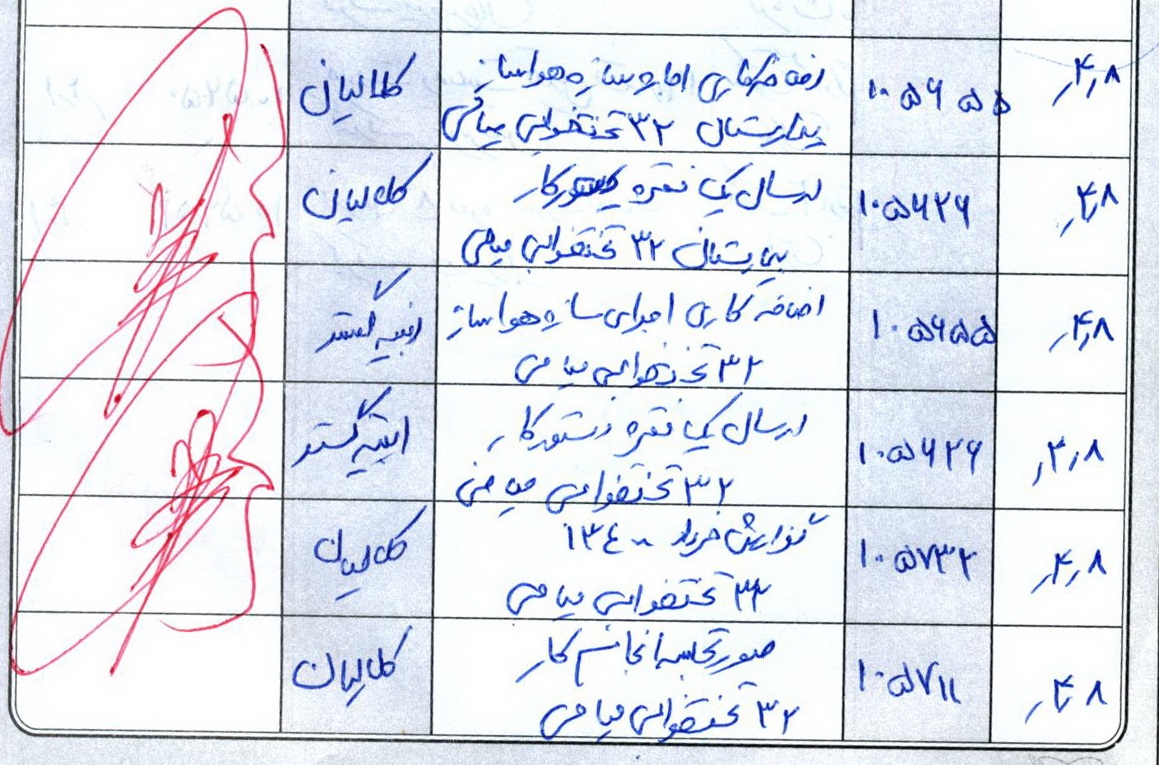 ۴٫۸
۱۰۵۶۵۵
اضافه کاری اجرای سازه هواساز
بیمارستان ۳۲ تختخوابی میامی
کلالیان
۴٫۸
۱۰۵۶۲۶
ارسال یک فقره دستورکار
بیمارستان ۳۲ تختخوابی میامی
کلالیان
۴٫۸
۱۰۵۶۵۵
اضافه کاری اجرای سازه هواساز
۳۲ تختخوابی میامی
ابنیه گستر
۴٫۸
۱۰۵۶۲۶
ارسال یک فقره دستورکار
۳۲ تختخوابی میامی
ابنیه گستر
۴٫۸
۱۰۵۷۳۲
گزارش خرداد ۱۴۰۰
۳۲ تختخوابی میامی
کلالیان
۴٫۸
۱۰۵۷۱۱
صورتجلسه انجام کار
۳۲ تختخوابی میامی
کلالیان